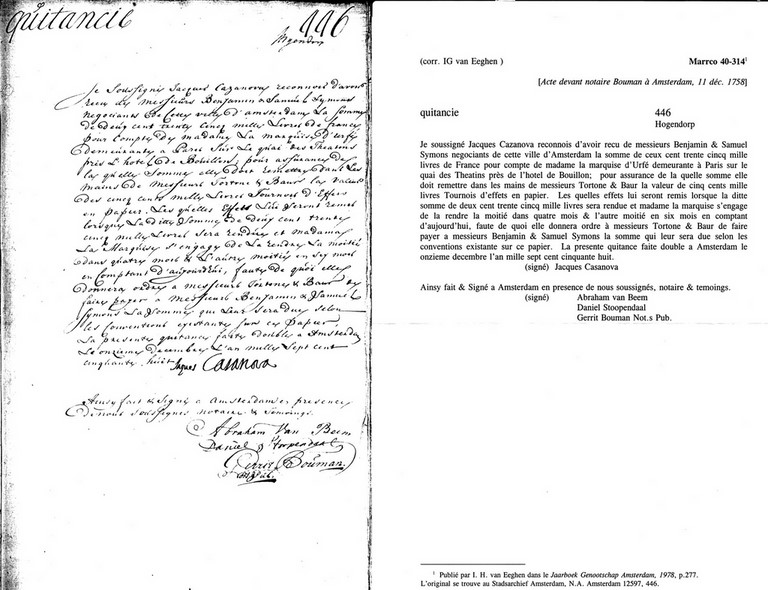 quitancie
446
Hogendorp
Je Soussigné Jacques Cazanova reconnois d'avoir
recu des Messieurs Benjamin & Samuel Symons
negocians de Cette ville d'amsterdam La Somme
de deux cent trente cinq mille Livres de france
pour Compte de madame La marquise d'urfé
demeurante a Paris Sur Le quai des Theatins
près L'hotel de Bouillon; pour assurance de
la quelle Somme elle doit remettre dans Les
mains de messieurs Tortone & Baur la valeur
des cinq cent mille Livres Tournois d'Effets
en papier. Les quelles Effets Lui Seront remis
lorsque La ditte Somme de deux cent trente
cinq mille Livres Sera rendue et madame
La Marquise S'engage de La rendre La moitié
dans quatre mois & L'autre moitié en Six mois
en Comptant d'aujourd'hui, faute de quoi elle
donnera ordre a messieurs Tortone & Baur de
faire payer a messieurs Benjamin & Samuel
Symons La Somme qui Leur Sera due selon
les conventions existantes sur ces Papier
La presente quitance faite double a Amsterdam
Le onzieme decembre L'an mille Sept cent
cinquante huit Jaques Casanova
Ainsy fait & Signé a Amsterdam en presence
de nous Soussignes notaire & temoings.
Abraham Van Beem
Daniel Stoopendaal
Gerrit Bouman
Not: Pub:
(corr. IG van Eeghen )
Marrco 40-314¹
[Acte devant notaire Bouman à Amsterdam, 11 déc. 1758]
quitancie
446
Hogendorp
Je soussigné Jacques Cazanova reconnois d'avoir recu de messieurs Benjamin & Samuel
Symons negociants de cette ville d'Amsterdam la somme de ceux cent trente cinq mille
livres de France pour compte de madame la marquise d'Urfé demeurante à Paris sur le
quai des Theatins près de l'hotel de Bouillon; pour assurance de la quelle somme elle
doit remettre dans les mains de messieurs Tortone & Baur la valeur de cinq cents mille
livres Tournois d'effets en papier. Les quelles effets lui seront remis lorsque la ditte
somme de deux cent trente cinq mille livres sera rendue et madame la marquise s'engage
de la rendre la moitié dans quatre mois & l'autre moitié en six mois en comptant
d'aujourd'hui, faute de quoi elle donnera ordre à messieurs Tortone & Baur de faire
payer a messieurs Benjamin & Samuel Symons la somme qui leur sera due selon les
conventions existante sur ce papier. La presente quitance faite double a Amsterdam le
onzieme decembre l'an mille sept cent cinquante huit.
(signé) Jacques Casanova
Ainsy fait & Signé a Amsterdam en presence de nous soussignés, notaire & temoings.
(signé) Abraham van Beem
Daniel Stoopendaal
Gerrit Bouman Not.s Pub.
¹ Publié par I. H. van Eeghen dans le Jaarboek Genootschap Amsterdam, 1978, p.277.
L'original se trouve au Stadsarchief Amsterdam, N.A. Amsterdam 12597, 446.